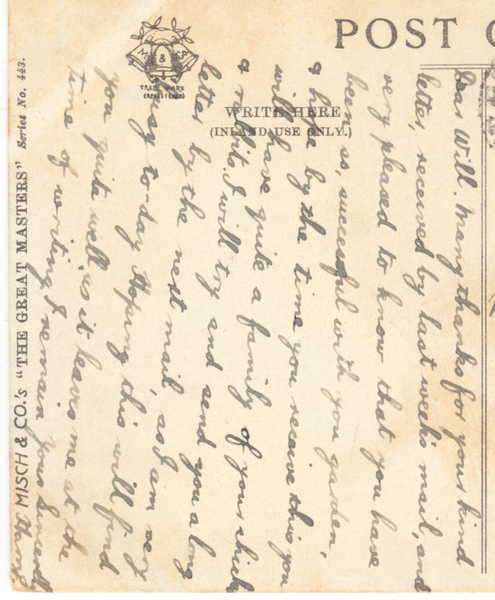 POST
M & Co
TRADE MARK
(REGISTERED)
WRITE HERE
(INLAND USE ONLY.)
MISCH & CO.'s "THE GREAT MASTERS" Series No. 443.
Dear Will. Many thanks for your kind
letter, received by last weeks mail, and
very pleased to know that you have
been so successful with you garden,
& hope by the time you receive this you
will have quite a family of your
a rabbits. I will try and send you a long
letter by the next mail, as I am very
busy to-day Hoping this will find
you quite well as it leaves me at the
time of writing I remain yours sincerely
Harry